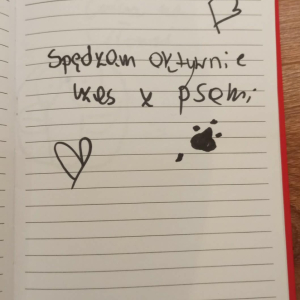 Spędzam aktywnie
czas z psami